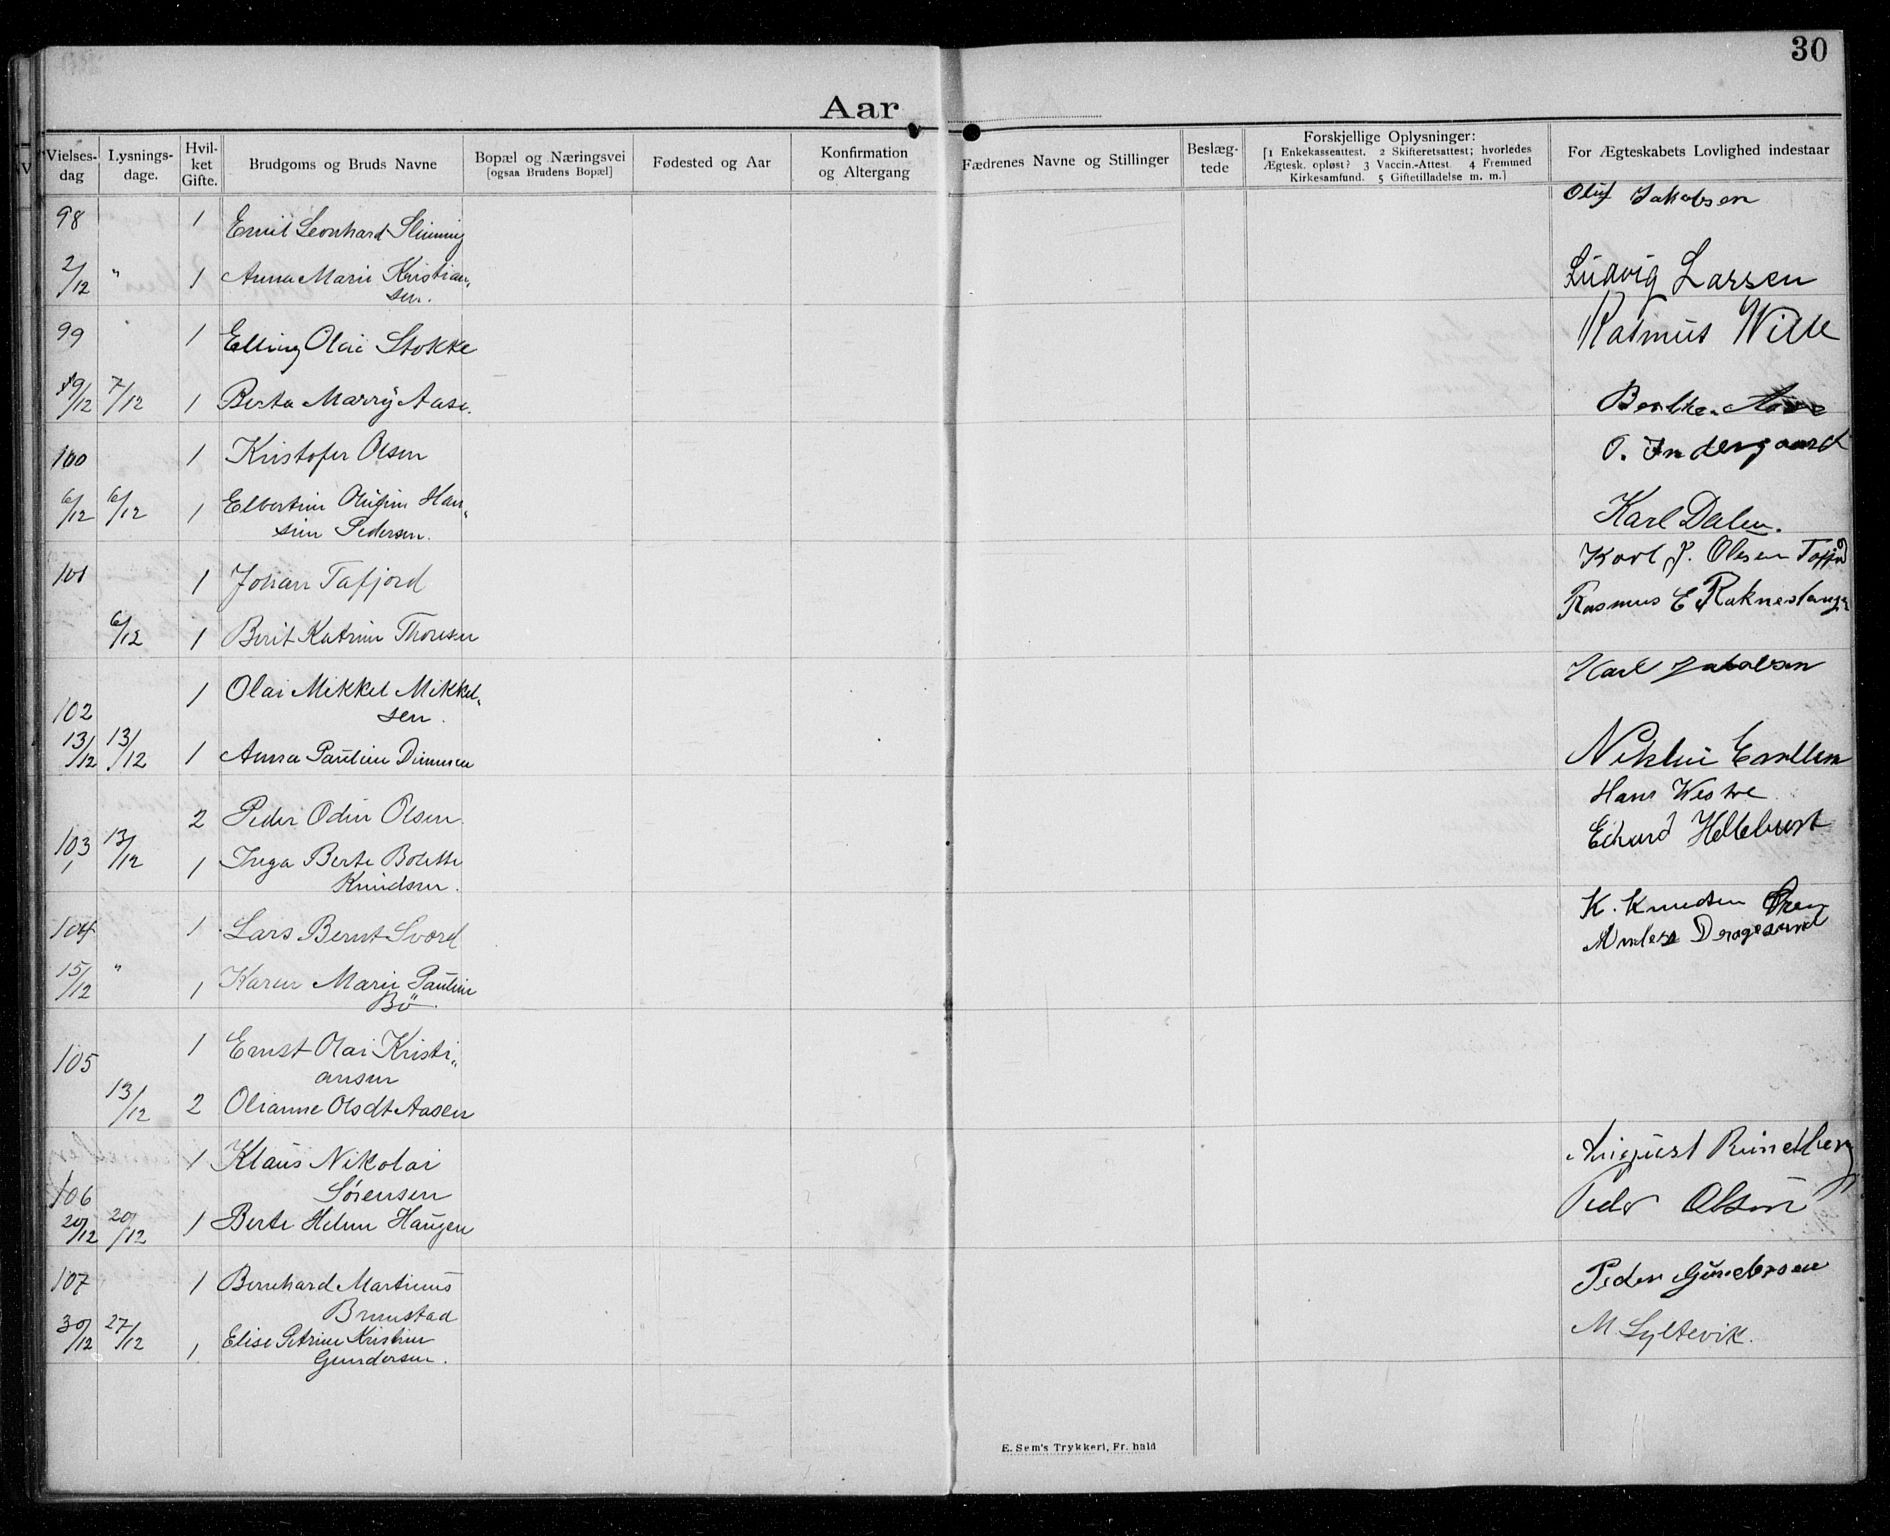 30
Aar
Vielses-dag
Lysnings-dage.
Hvil-ket Gifte.
Brudgoms og Bruds Navne
Bopæl og Næringsvei
[ogsaa Brudens Bopæl]
Fødested og Aar
Konfirmation og Altergang
Fædrenes Navne og Stillinger
Beslæg-tede
Forskjellige Oplysninger:
[1 Enkekasseattest. 2 Skifteretsattest; hvorledes
Ægtesk. opløst? 3 Vaccin.-Attest. 4 Fremmed
Kirkesamfund. 5 Giftetilladelse m. m.]
For Ægteskabets Lovlighed indestaar
Oluf Jakobsen
98 1 Emil Leonhard Slinning
2/12 " 1 Anna Marie Kristian-
sen.
Ludvig Larsen
99 1 Elling Olai Stokke
Rasmus Wiik
19/12 7/12 1 Berta Marry Aase.
100 1 Kristofer Olsen
O. Indergaard
6/12 6/12 1 Elbertine Olufine Han-
sine Pedersen.
Karl Dalen.
101 1 Johan Tafjord
Karl P. Olsen Tafjord
Rasmus E Raknestange
6/12 1 Berit Katrine Thoresen
Karl Jakobsen
102 1 Olai Mikkel Mikkel-
sen.
13/12 13/12 1 Anna Pauline Dimmen
Hans Westre
2 Peder Odin Olsen
Edvard Hellebust
103 13/12 1 Inga Berte Bolette
Knudsen.
K. Knudsen
104 1 Lars Bernt Svord
Anders Dragesund
15/12 " 1 Karen Marie Pauline
Bö.
105 1 Ernst Olai Kristi-
ansen
13/12 2 Olianne Olsdt Aasen
1 Klaus Nikolai
August
106 Sørensen
Peder Olsen
20/12 20/12 1 Berte Heline Haugen
107 1 Bernhard Martinus
Peder Gundersen
Brunstad
30/12 27/12 1 Elise Petrine Kristine
M. Syltevik.
Gundersen.
E. Sem's Trykkeri, Fr. hald